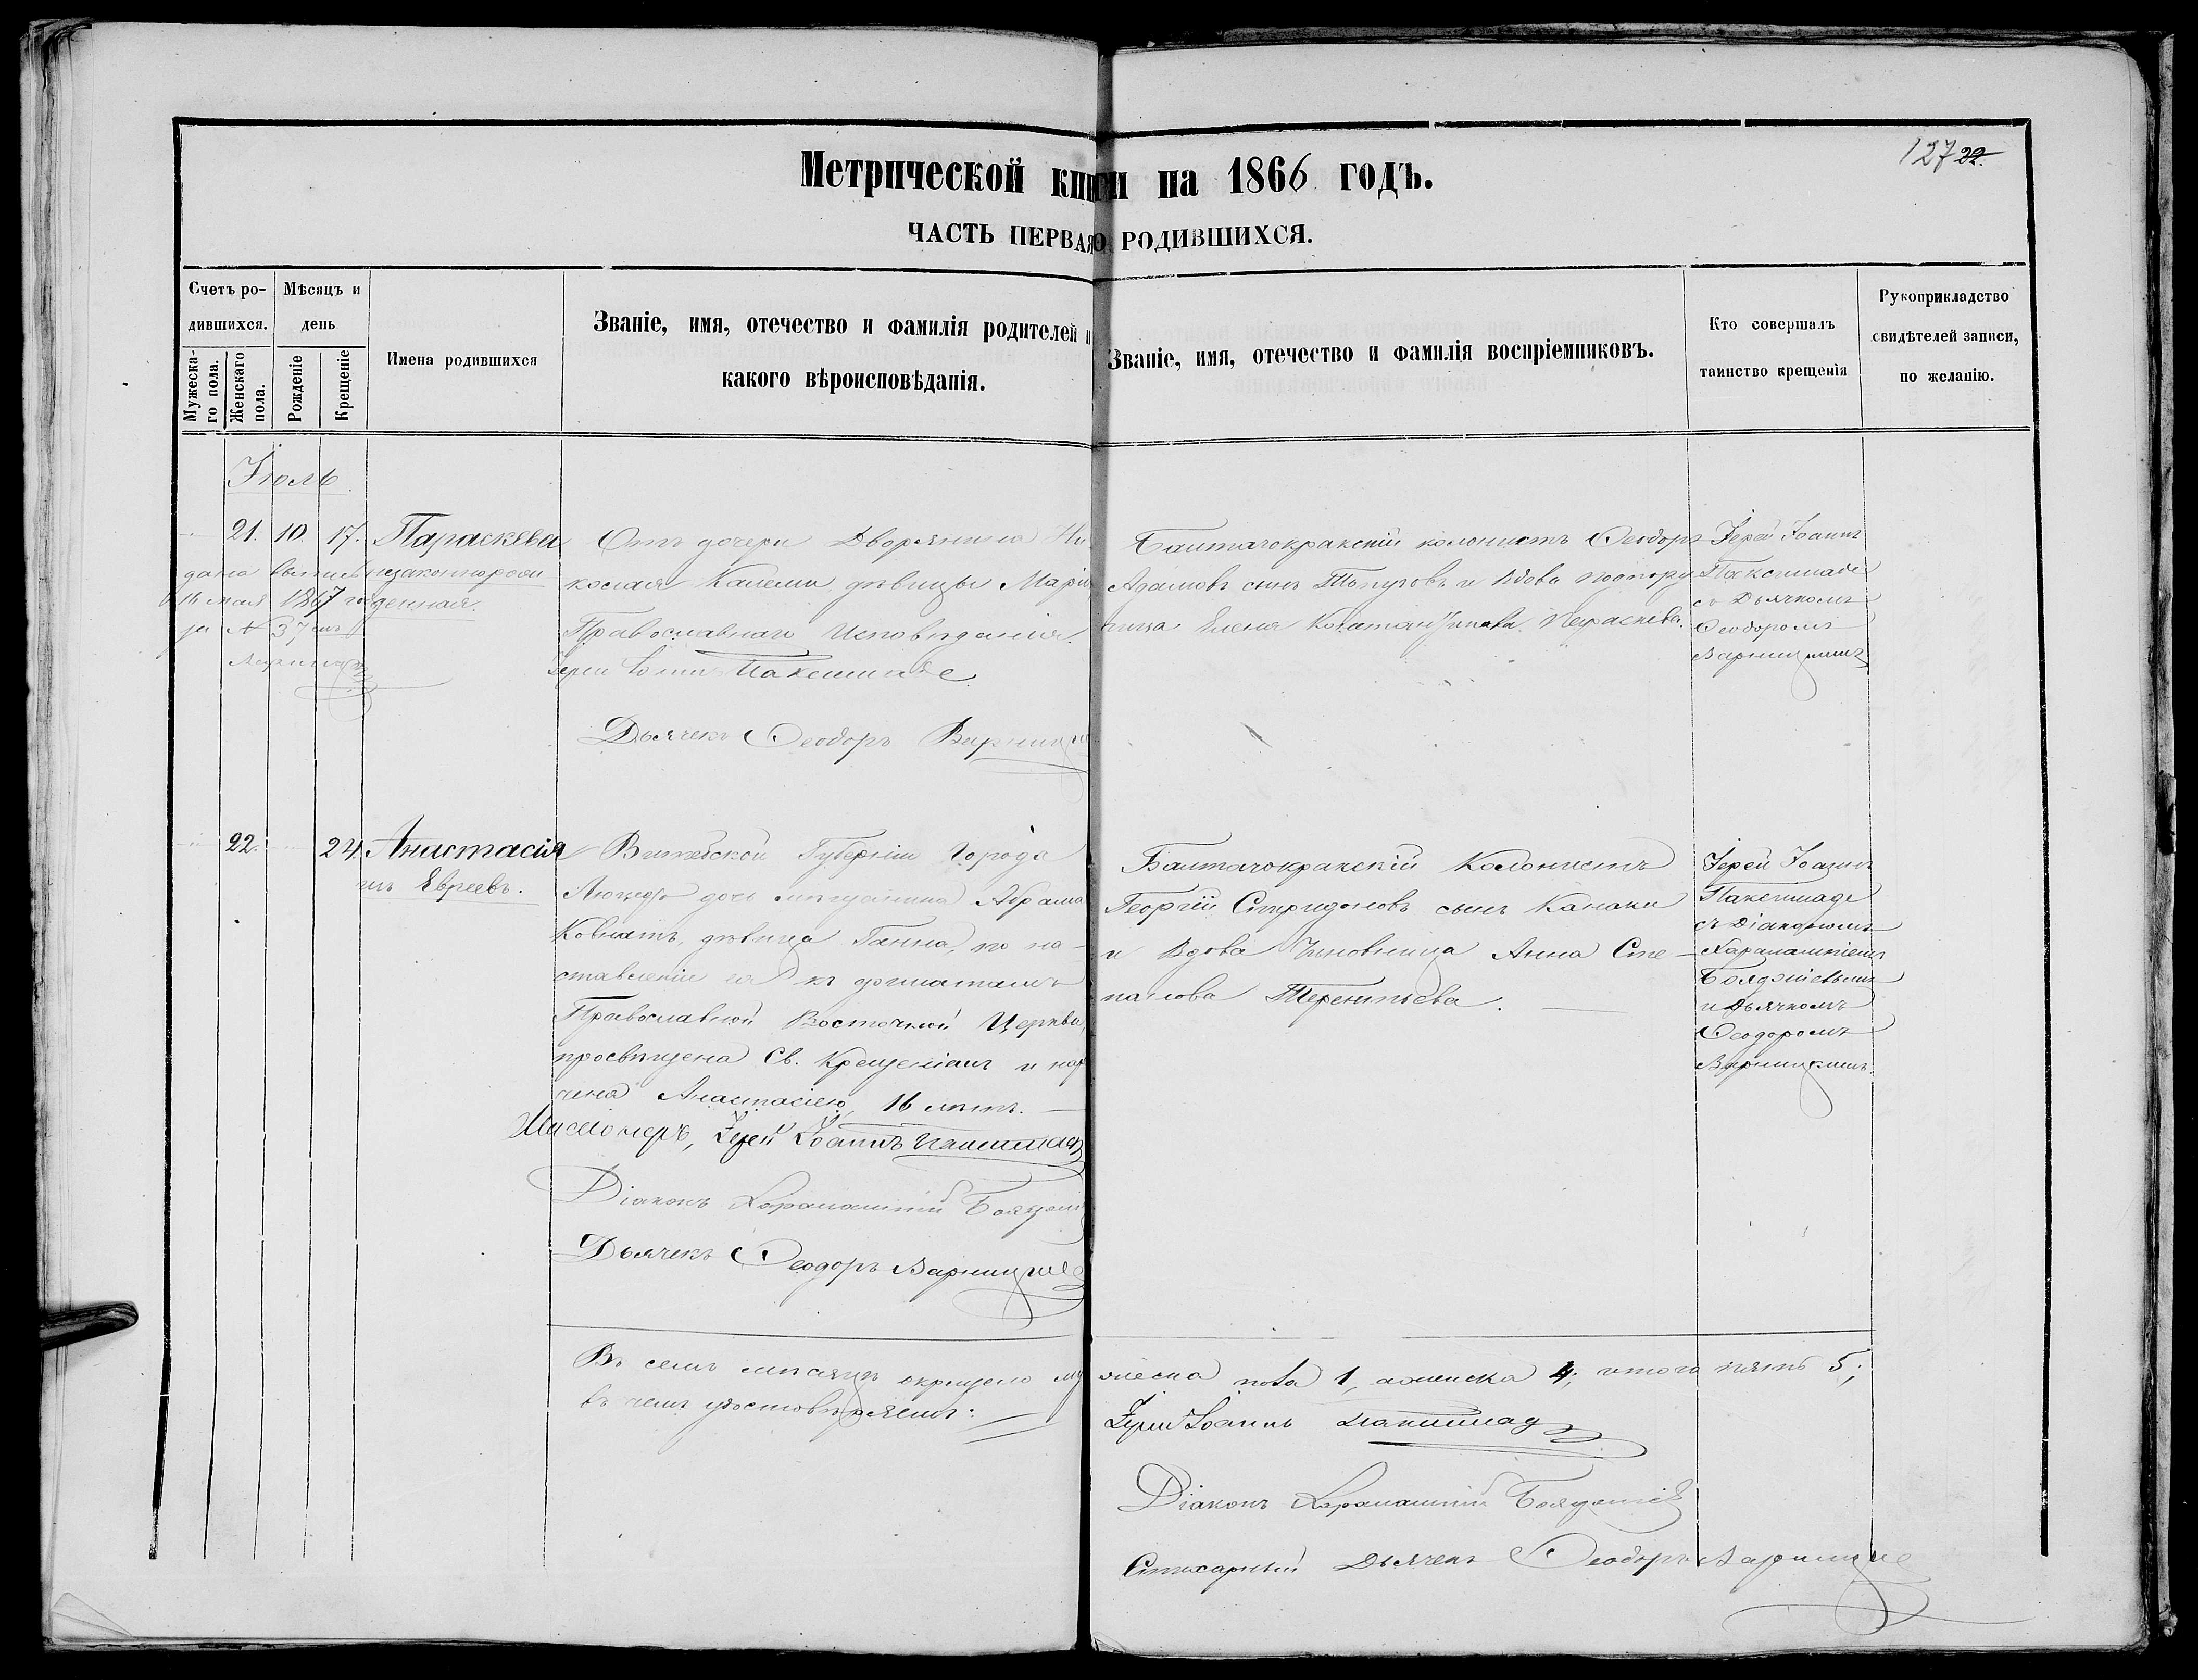 127 22.
Метрической книги на 1866 годъ.
ЧАСТЬ ПЕРВАЯ О РОДИВШИХСЯ.
Счетъ ро-
дившихся.
Мужеска-
го пола.
Женскаго
пола.
Мѣсяцъ и
день
Рожденіе
Крещеніе
Имена родившихся
Званіе, имя, отечество и фамилія родителей и
какого вѣроисповѣданія.
Званіе, имя, отечество и фамилія воспріемниковъ.
Кто совершалъ
таинство крещенія
Рукоприкладство
свидѣтелей записи,
по желанію.
Іюль
21. 10. 17. Параскева
незаконнорож
денная.
дана выпись
16 мая 1867 го
за № 37
Отъ дочери Дворянина Ни-
колая дѣвицы Маріи
Православнаго Исповѣданія.
Іерей Іоаннъ Паксимаде
Дьячекъ Ѳеодоръ Варницкі
Баштачокракскій колонистъ Ѳеодоръ
Адамовъ сынъ Топузовъ и вдова подпору
чица Елена Параскева.
Іерей Іоаннъ
Паксимаде
съ Дьячкомъ
Ѳеодоромъ
Варницкимъ
22. 24. Анастасія
изъ Евреевъ.
Витебской Губерніи Города
дочь мѣщанина Абрама
дѣвица Ганна, по на-
ставленіи ея къ догматамъ
Православной Восточной Церкви,
просвѣщена Св. Крещеніемъ и наре
чена Анастасіею, 16 лѣтъ.
Миссіонеръ, Іерей Іоаннъ Паксимаде
Діаконъ Харалампій Бояджи
Дьячекъ Ѳеодоръ Варницкіе
Баштачокракскій Колонистъ
Георгій Спиридоновъ сынъ Канаки
и Вдова Чиновница Анна Сте-
панова Терентьева.
Іерей Іоаннъ
Паксимаде
съ Діакономъ
Харалампіемъ
Бояджіевымъ
и Дьячкомъ
Ѳеодоромъ
Варницкимъ.
Въ семъ мѣсяцѣ окрещено мужеска пола 1, женска 4; итого пять 5;
въ чемъ удостовѣряемъ:
Іерей Іоаннъ Паксимаде
Діаконъ Харалампій Бояджіевъ
Стихарный Дьячекъ Ѳеодоръ Варницкіе